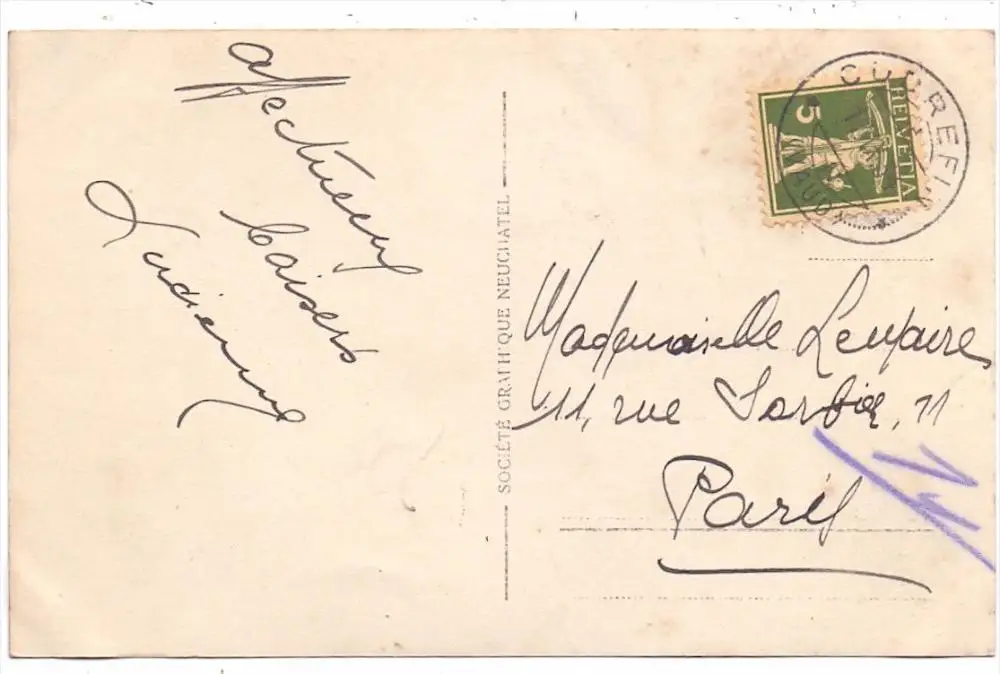 affectueux
baisers
Lucienne
SOCIÉTÉ GRAPHIQUE NEUCHATEL
HELVETIA
5
CUDREFIN
(VAUD)
Mademoiselle Lempaire
11, rue Sorbier, 11
Paris